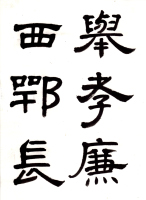 舉孝廉
西鄂長